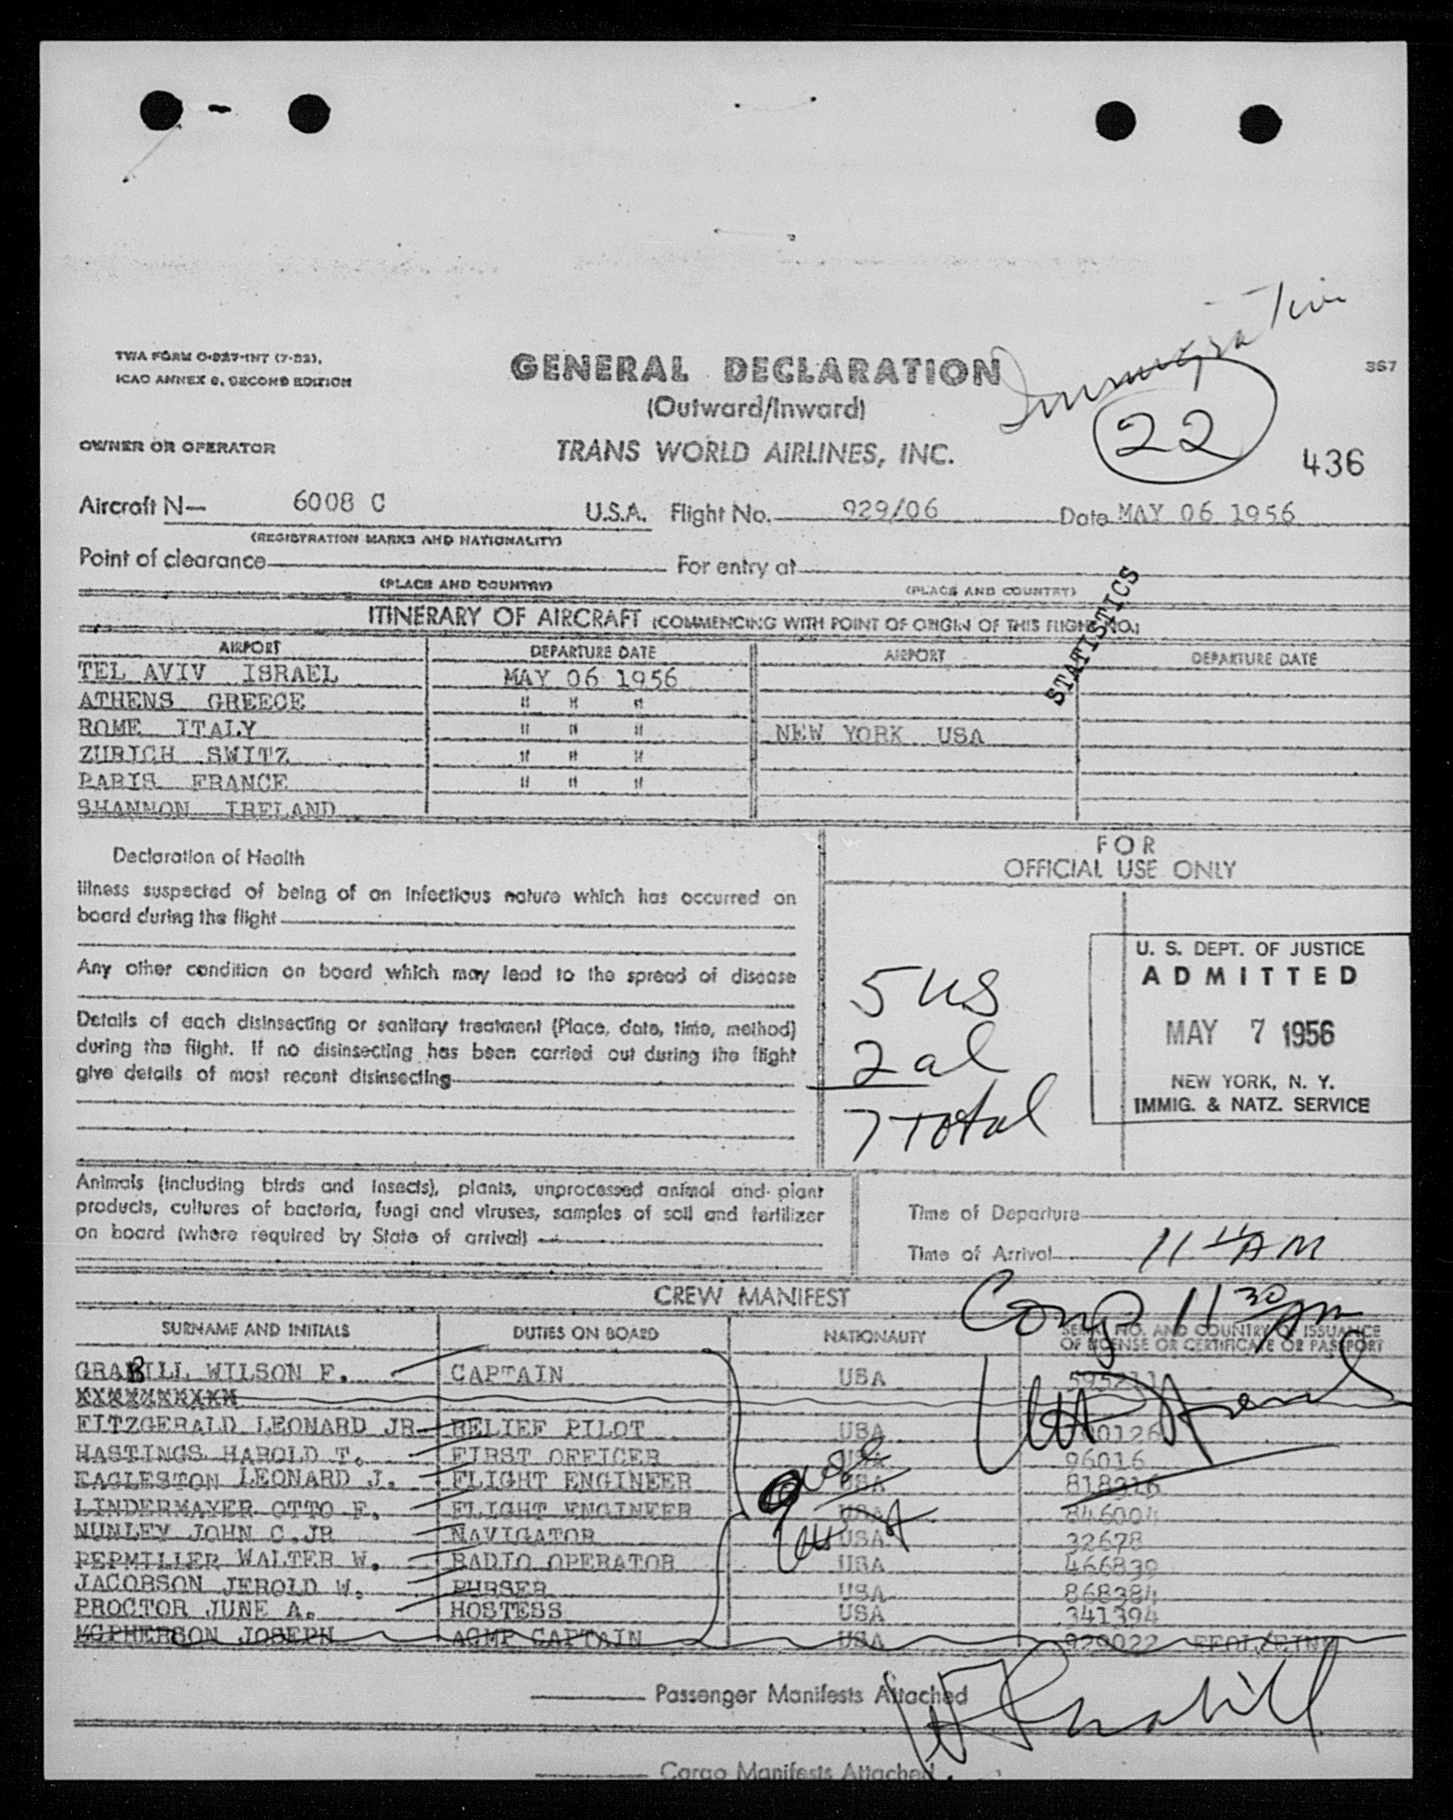 Immigration
TWA FORM O-927-INT (7-52).
ICAO ANNEX 9, SECOND EDITION
GENERAL DECLARATION
(Outward/Inward)
367
22
OWNER OR OPERATOR
TRANS WORLD AIRLINES, INC.
436
Aircraft N— 6008 C U.S.A. Flight No. 929/06 Date MAY 06 1956
(REGISTRATION MARKS AND NATIONALITY)
Point of clearance For entry at
(PLACE AND COUNTRY) (PLACE AND COUNTRY)
STATISTICS
ITINERARY OF AIRCRAFT (COMMENCING WITH POINT OF ORIGIN OF THIS FLIGHT NO.)
AIRPORT DEPARTURE DATE AIRPORT DEPARTURE DATE
TEL AVIV ISRAEL MAY 06 1956
ATHENS GREECE " " "
ROME ITALY " " " NEW YORK USA
ZURICH SWITZ " " "
PARIS FRANCE " " "
SHANNON IRELAND
Declaration of Health
Illness suspected of being of an infectious nature which has occurred on
board during the flight
Any other condition on board which may lead to the spread of disease
Details of each disinsecting or sanitary treatment (Place, date, time, method)
during the flight. If no disinsecting has been carried out during the flight
give details of most recent disinsecting
FOR
OFFICIAL USE ONLY
5 US
2 al
7 Total
U. S. DEPT. OF JUSTICE
ADMITTED
MAY 7 1956
NEW YORK, N. Y.
IMMIG. & NATZ. SERVICE
Animals (including birds and insects), plants, unprocessed animal and plant
products, cultures of bacteria, fungi and viruses, samples of soil and fertilizer
on board (where required by State of arrival)
Time of Departure
Time of Arrival 11 AM
CREW MANIFEST
Comp 11 30 AM
SURNAME AND INITIALS DUTIES ON BOARD NATIONALITY SERIAL NO. AND COUNTRY OF ISSUANCE
OF LICENSE OR CERTIFICATE OR PASSPORT
GRABILL WILSON F. CAPTAIN USA
FITZGERALD LEONARD JR RELIEF PILOT USA
HASTINGS HAROLD T. FIRST OFFICER USA 96016
EAGLESTON LEONARD J. FLIGHT ENGINEER USA 818216
LINDERMAYER OTTO F. FLIGHT ENGINEER USA 846004
NUNLEY JOHN C. JR NAVIGATOR USA 32678
PEPMILLER WALTER W. RADIO OPERATOR USA 466839
JACOBSON JEROLD W. PURSER USA 868384
PROCTOR JUNE A. HOSTESS USA 341394
MCPHERSON JOSEPH ACMP CAPTAIN USA 920022
Passenger Manifests Attached
Cargo Manifests Attached